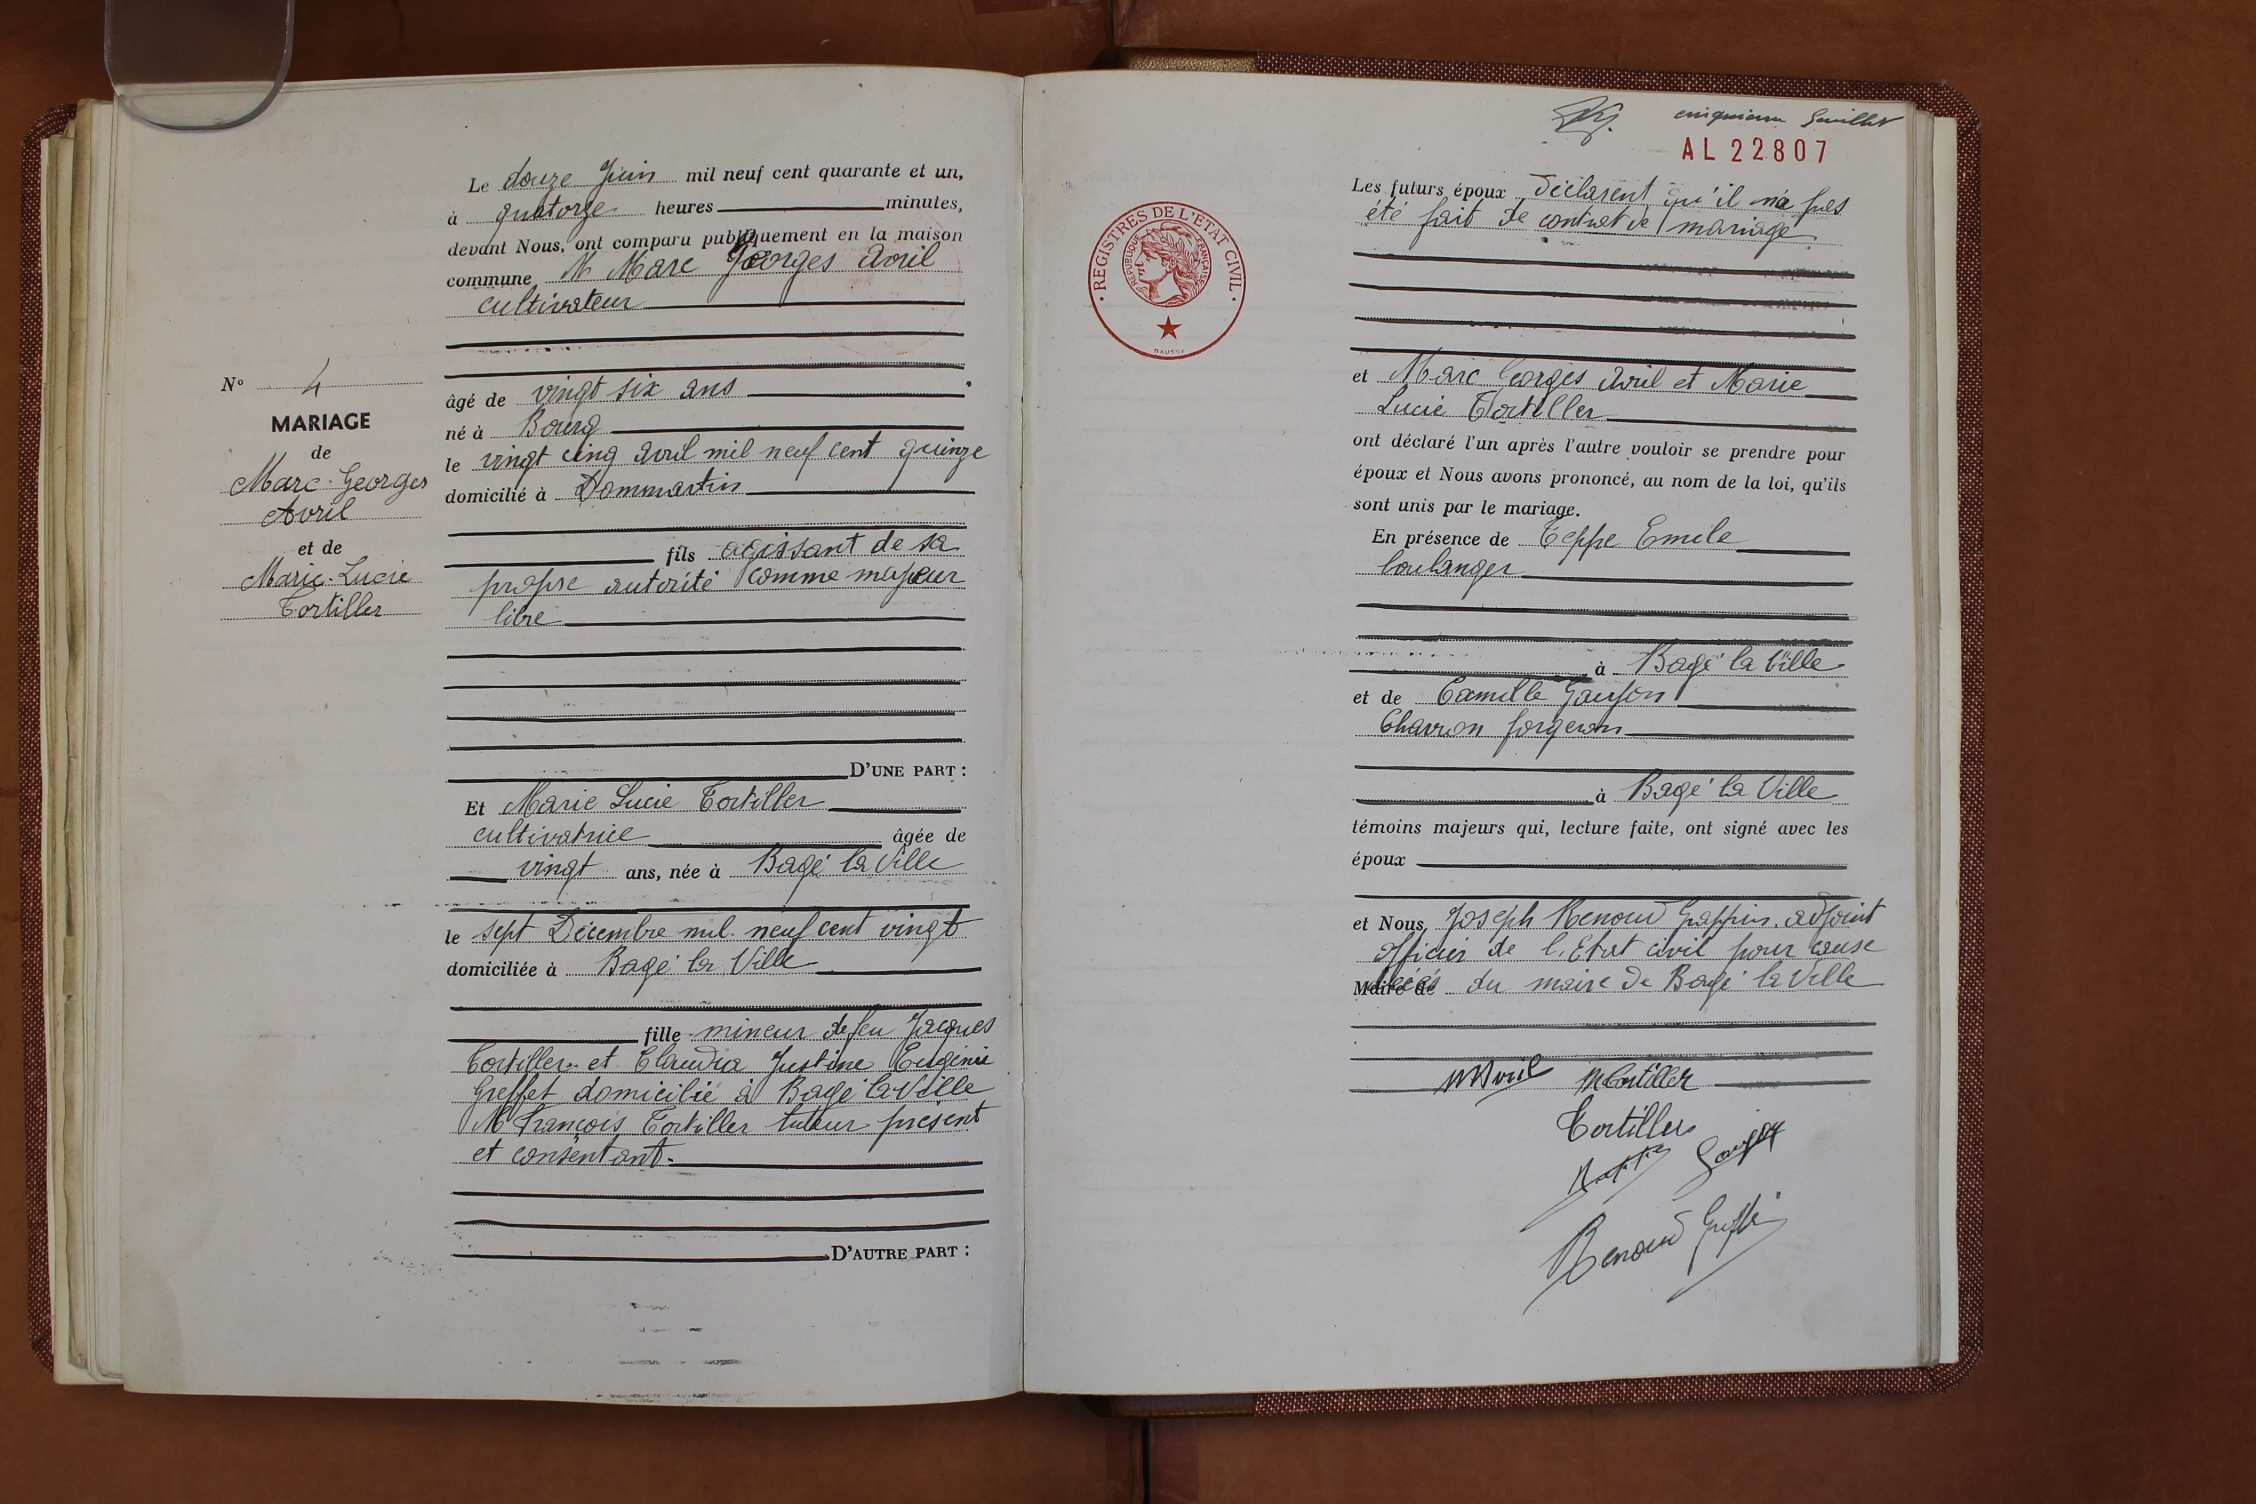 Le douze Juin mil neuf cent quarante et un,
à quatorze heures minutes,
devant Nous, ont comparu publiquement en la maison
commune M Marc Georges Avril
cultivateur
âgé de vingt six ans
né à Bourg
le vingt cinq avril mil neuf cent quinze
domicilié à Dommartin
fils agissant de sa
propre autorité comme majeur
libre
D'UNE PART :
N° 4
MARIAGE
de
Marc-Georges
Avril
et de
Marie-Lucie
Tortiller
Et Marie Lucie Tortiller
cultivatrice âgée de
vingt ans, née à Bagé la Ville
le sept Décembre mil neuf cent vingt
domiciliée à Bagé la Ville
fille mineur de feu Jacques
Tortiller et Claudia Justine Eugénie
Greffet domicilié à Bagé la Ville
M François Tortiller tuteur présent
et consentant.
D'AUTRE PART :
cinquième feuillet
AL 22807
REGISTRES DE L'ETAT CIVIL
REPUBLIQUE FRANÇAISE
Les futurs époux déclarent qu'il n'a pas
été fait de contrat de mariage
et Marc Georges Avril et Marie
Lucie Tortiller
ont déclaré l'un après l'autre vouloir se prendre pour
époux et Nous avons prononcé, au nom de la loi, qu'ils
sont unis par le mariage.
En présence de Teppe Emile
boulanger
à Bagé la Ville
et de Camille Gauyon
Charron forgeron
à Bagé la Ville
témoins majeurs qui, lecture faite, ont signé avec les
époux
et Nous, Joseph Renoud Grappin adjoint
officier de l'Etat civil pour cause
Maire de décès du maire de Bagé la Ville
MAvril MTortiller
Tortiller
Renoud